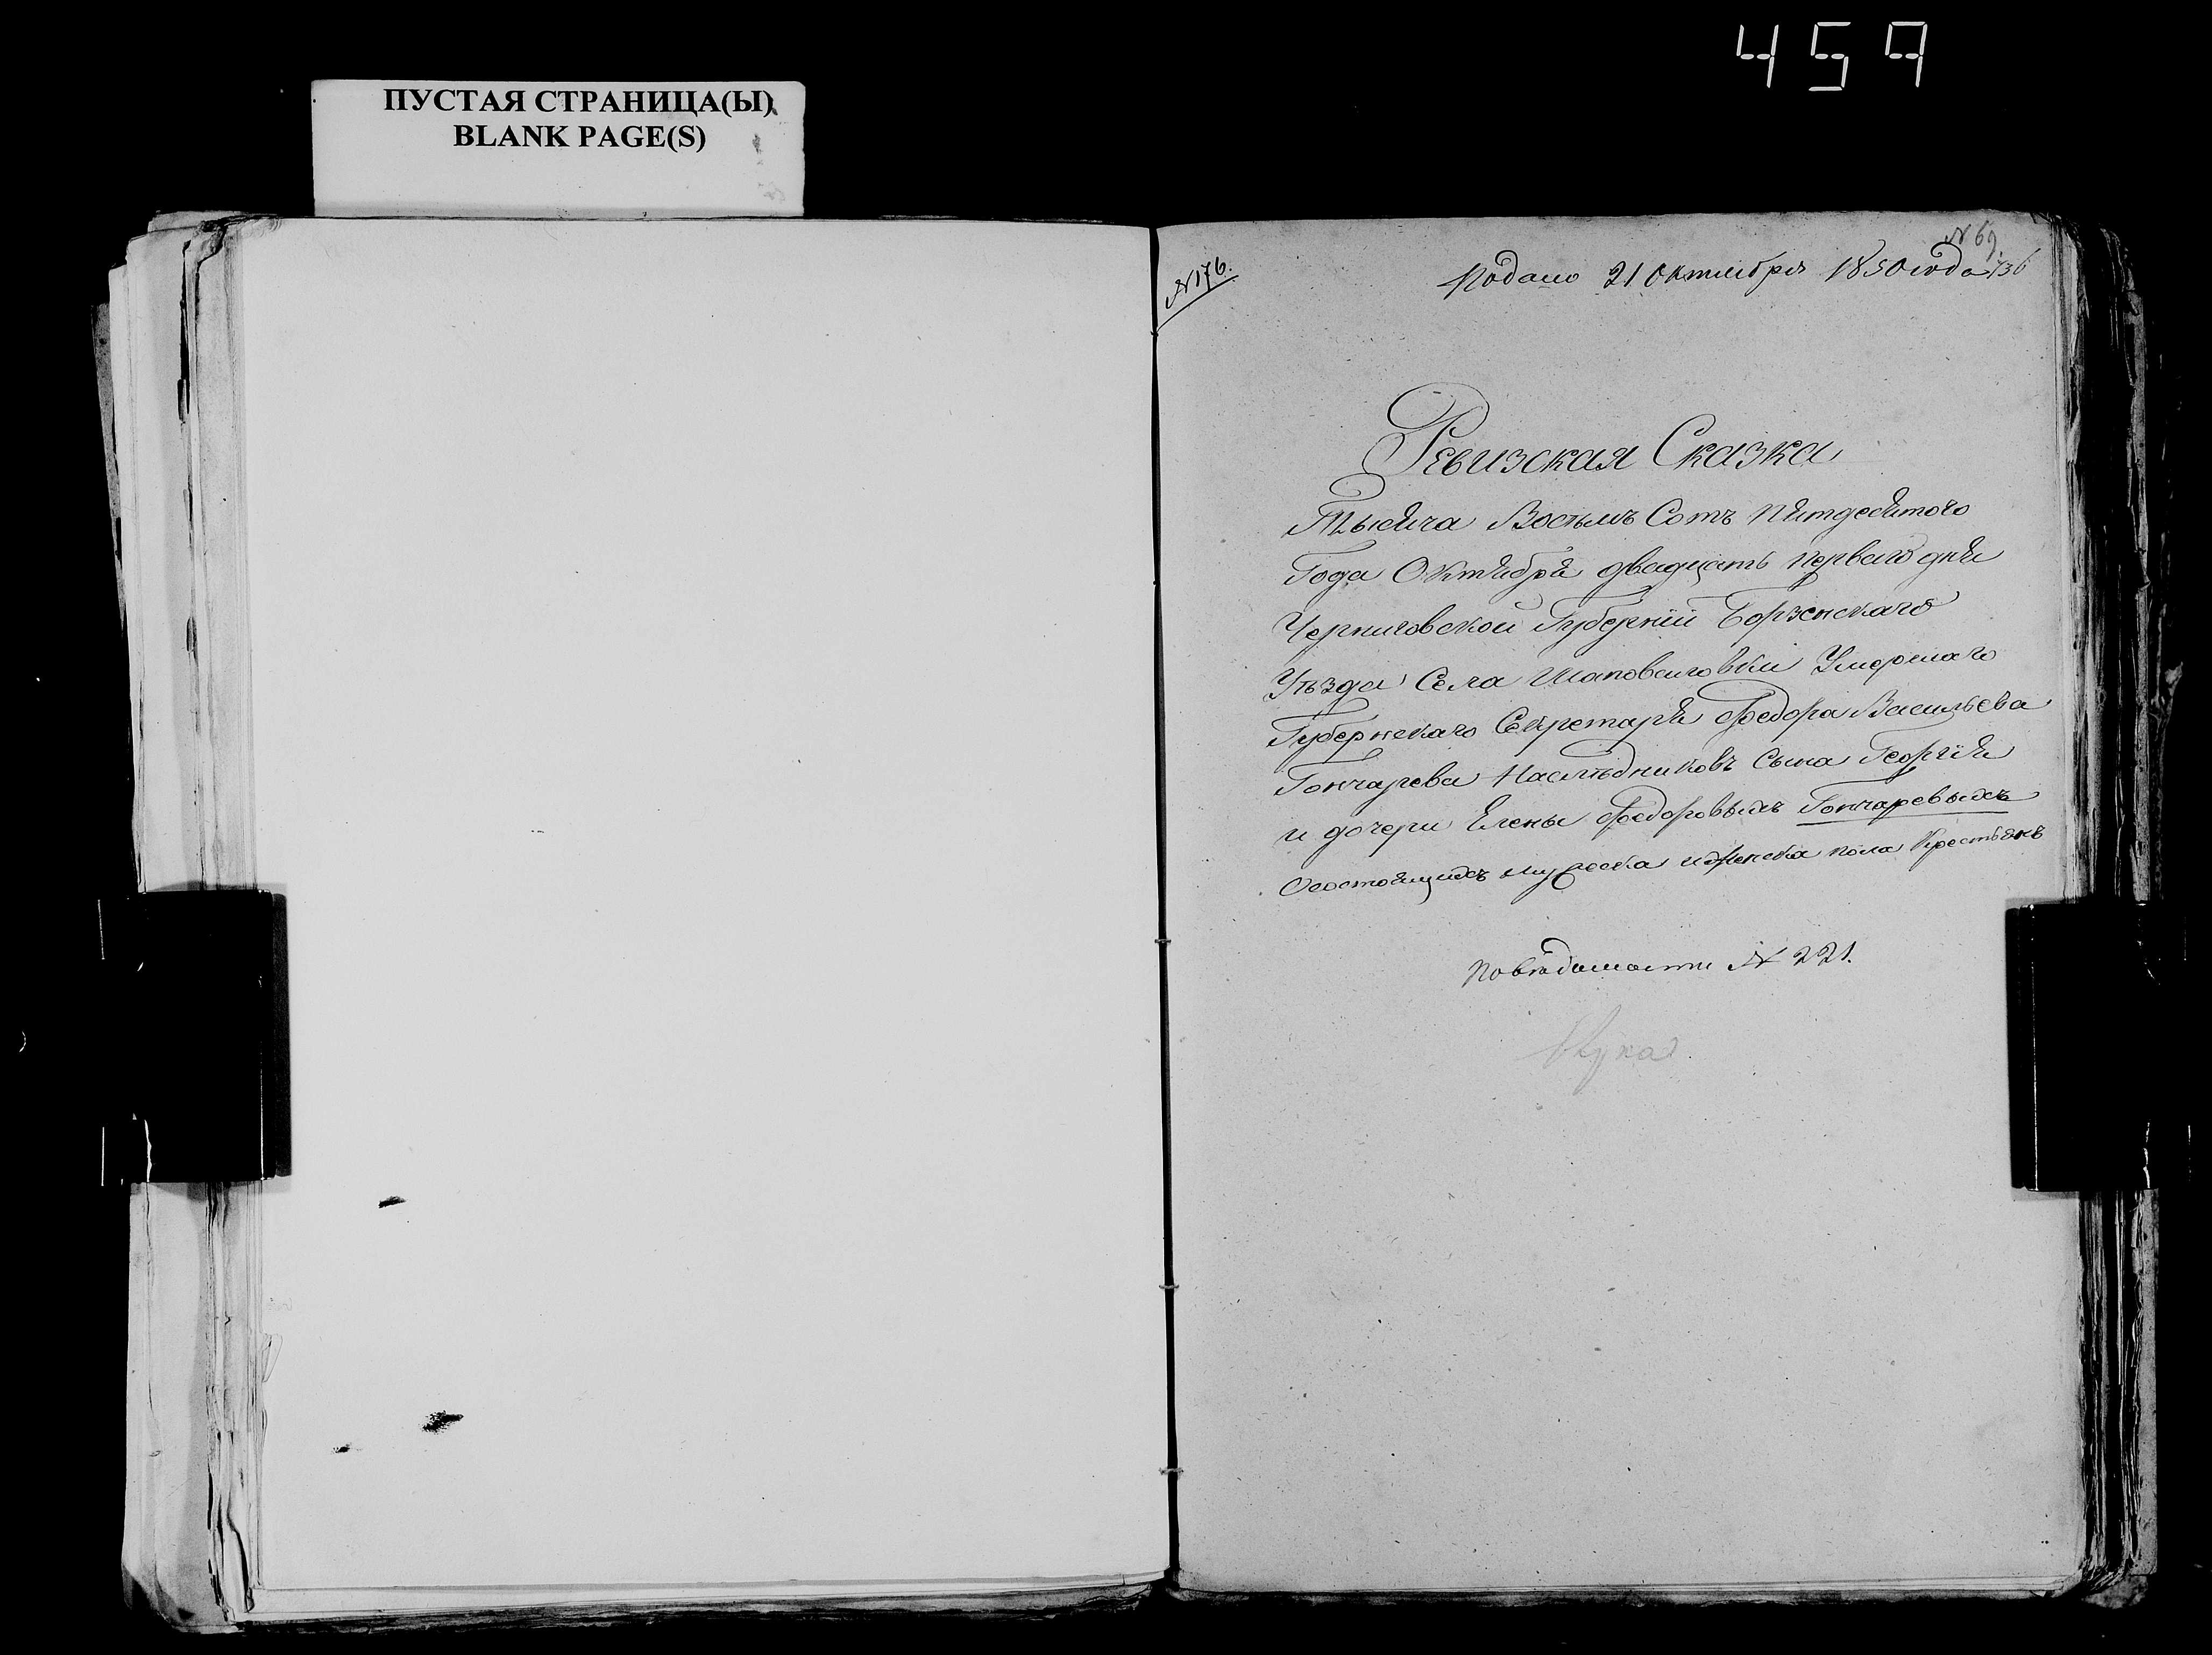 459
ПУСТАЯ СТРАНИЦА(Ы)
BLANK PAGE(S)
№ 69.
№176.
Подано 21 Октября 1850 года 136
Ревизская Сказка
Тысяча Восемь Сотъ пятдесятого
Года Октября двадцать перваго дня
Черниговской Губерніи Борзенскаго
Уѣзда Села Шаповаловки Умершаго
Губернскаго Секретаря Федора Васильева
Гончарева Наслѣдниковъ Сына Георгія
и дочери Елены Федоровыхъ Гончаревыхъ
О состоящихъ мужеска и женска пола Крестьянъ
По вѣдомости № 221.